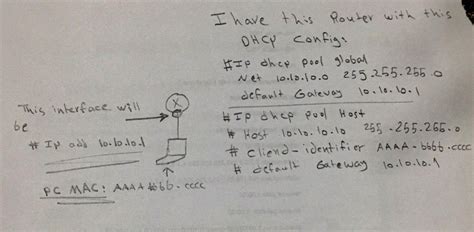 I have this Router with this
DHCP Config:
#Ip dhcp pool global
Net 10.10.10.0 255.255.255.0
default Gateway 10.10.10.1
#Ip dhcp pool Host
# Host 10.10.10.10 255.255.255.0
# client-identifier AAAA-bbbb.cccc
# default Gateway 10.10.10.1
This interface will
be
# Ip add 10.10.10.1
X
PC MAC: AAAA bbbb.cccc